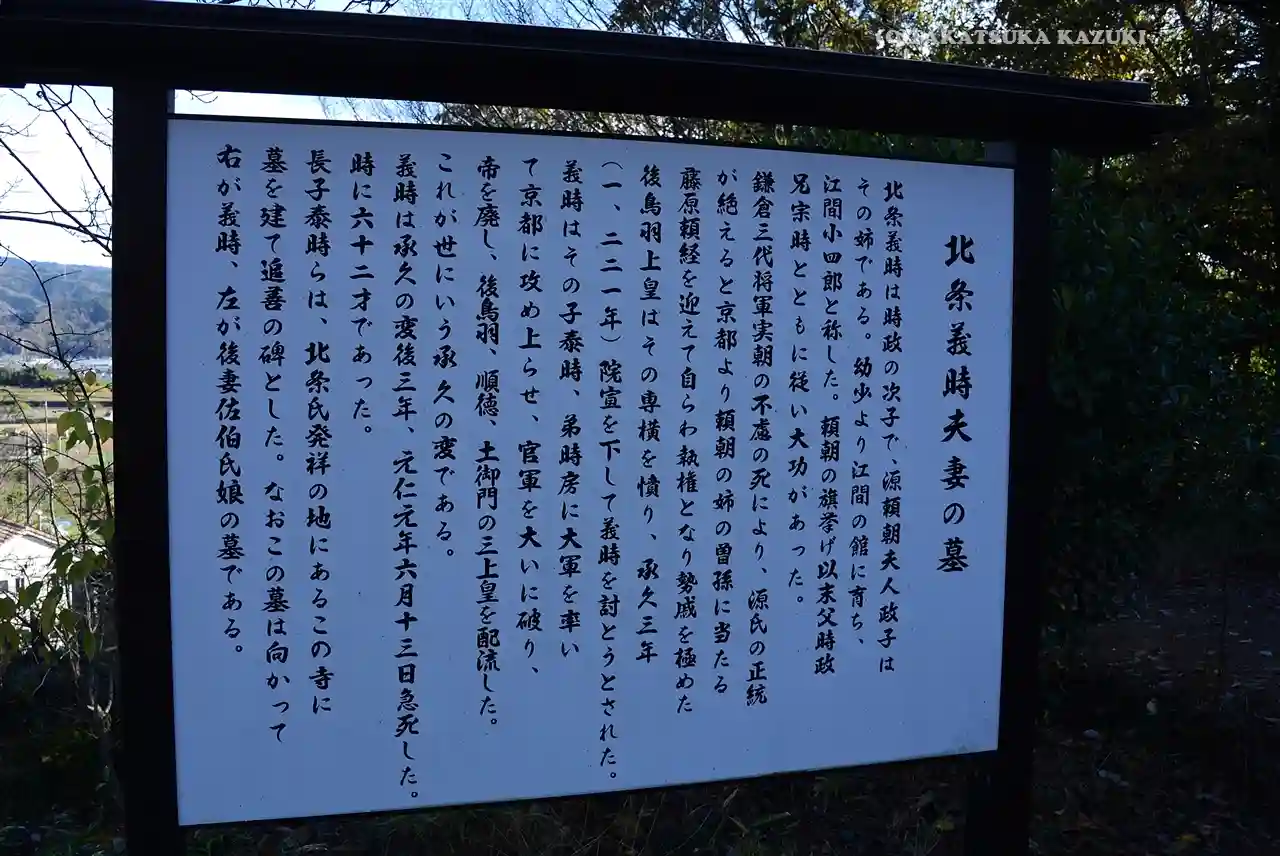 北条義時夫妻の墓
北条義時は時政の次子で、源頼朝夫人政子は
その姉である。幼少より江間の館に育ち、
江間小四郎と称した。頼朝の旗挙げ以末父時政
兄宗時とともに従い大功があった。
鎌倉三代将軍実朝の不慮の死により、源氏の正統
が絶えると京都より頼朝の姉の曽孫に当たる
藤原頼経を迎えて自らわ執権となり勢威を極めた
後鳥羽上皇はその専横を憤り、承久三年
(一、二二一年)院宣を下して義時を討とうとされた。
義時はその子泰時、弟時房に大軍を率い
て京都に攻め上らせ、官軍を大いに破り、
帝を廃し、後鳥羽、順徳、土御門の三上皇を配流した。
これが世にいう承久の変である。
義時は承久の変後三年、元仁元年六月十三日急死した。
時に六十二才であった。
長子泰時らは、北条氏発祥の地にあるこの寺に
墓を建て追善の碑とした。なおこの墓は向かって
右が義時、左が後妻佐伯氏娘の墓である。
KATSUKA KAZUKI